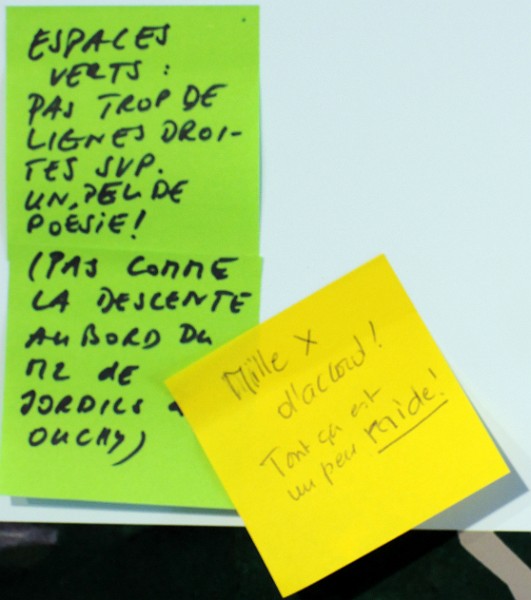 ESPACES
VERTS :
PAS TROP DE
LIGNES DROI-
TES SVP.
UN PEU DE
POESIE!
(PAS COMME
LA DESCENTE
AU BORD DU
M2 DE
JORDILS
OUCHY)
Mille x
d'accord!
Tout ça est
un peu raide!